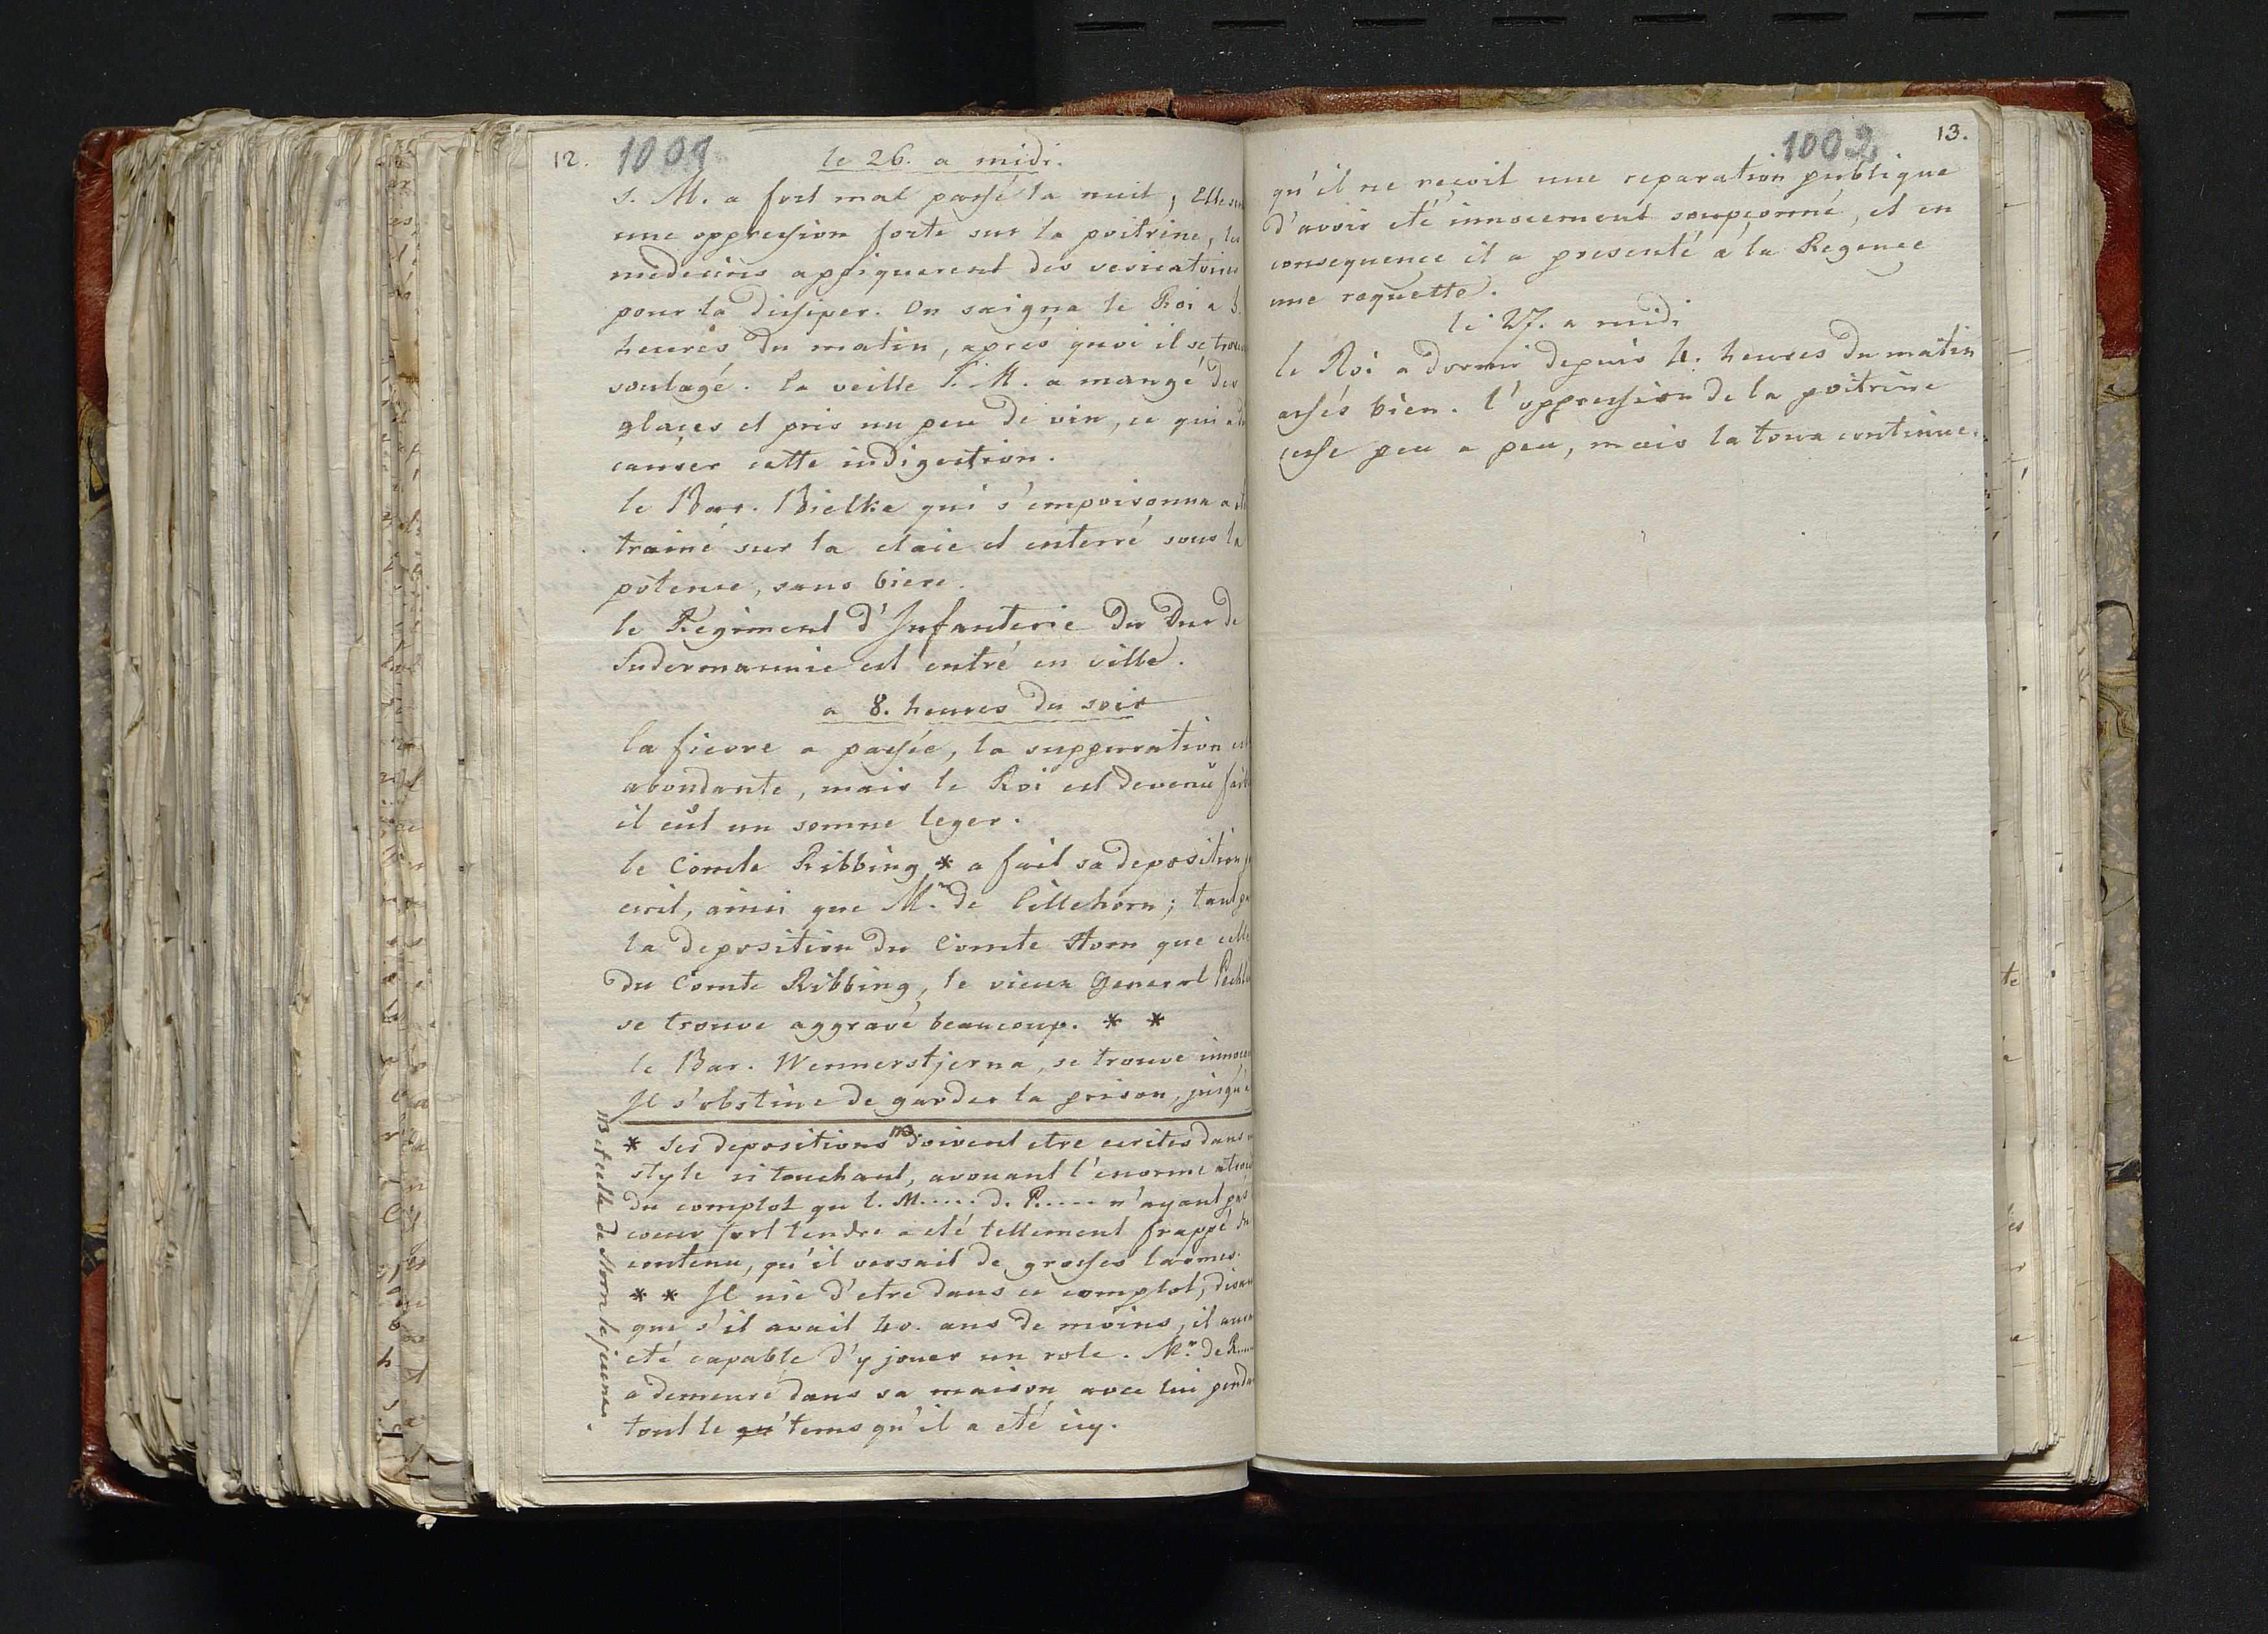 12. 1001
le 26. a midi.
S. M. a fort mal passé la nuit; Elle
une oppression forte sur la poitrine, les
medecins appiquerent des vesicatoires
pour la dissiper. On saigna le Roi a
heures du matin, aprés quoi il se trouva
soulagé. la veille S. M. a mangé des
glaçes et pris un peu de vin, ce qui a
causer cette indigestion.
le Bar. Bielke qui s'empoisonna a
trainé sur la claie et enterré sous la
potence, sans biere.
le Régiment d'Infanterie du Duc de
Sudermannie est entré en ville.
a 8. heures du soir
la fievre a passée, la suppuration est
abondante, mais le Roi est devenû
il eût un somne leger.
le Comte Ribbing * a fait sa deposition
ecrit, ainsi que Mr. de Lillehorn; tant
la deposition du Comte Horn que celle
du Comte Ribbing, le vieux General
se trouve aggravé beaucoup. * *
le Bar. Wennerstjerna, se trouve
Il s'obstine de garder la prison, jusqu'a
* Ses depositions NB doivent etre ecrites dans
style si touchant, avouant l'enorme
du complot qu l. M..... d. R..... n'ayant pas
coeur fort tendre a eté tellement frappé du
contenu, qu'il versait de grosses larmes.
* * Il nie d'etre dans ce complot,
que s'il avait 40. ans de moins, il
eté capable d'y jouer un role. Mr. de R.....
a demeuré dans sa maison avec lui
tout le qu' tems qu'il a eté icy.
NB et celle de Horn le jeune.
1002 13.
qu'il ne reçoit une reparation publique
d'avoir eté innocement soupçonné, et en
consequence il a presenté a la Regence
une requette.
le 27. a midi
le Roi a dormir depuis 4. heures du matin
assés bien. l'oppression de la poitrine
cesse peu a peu, mais la toux continue.